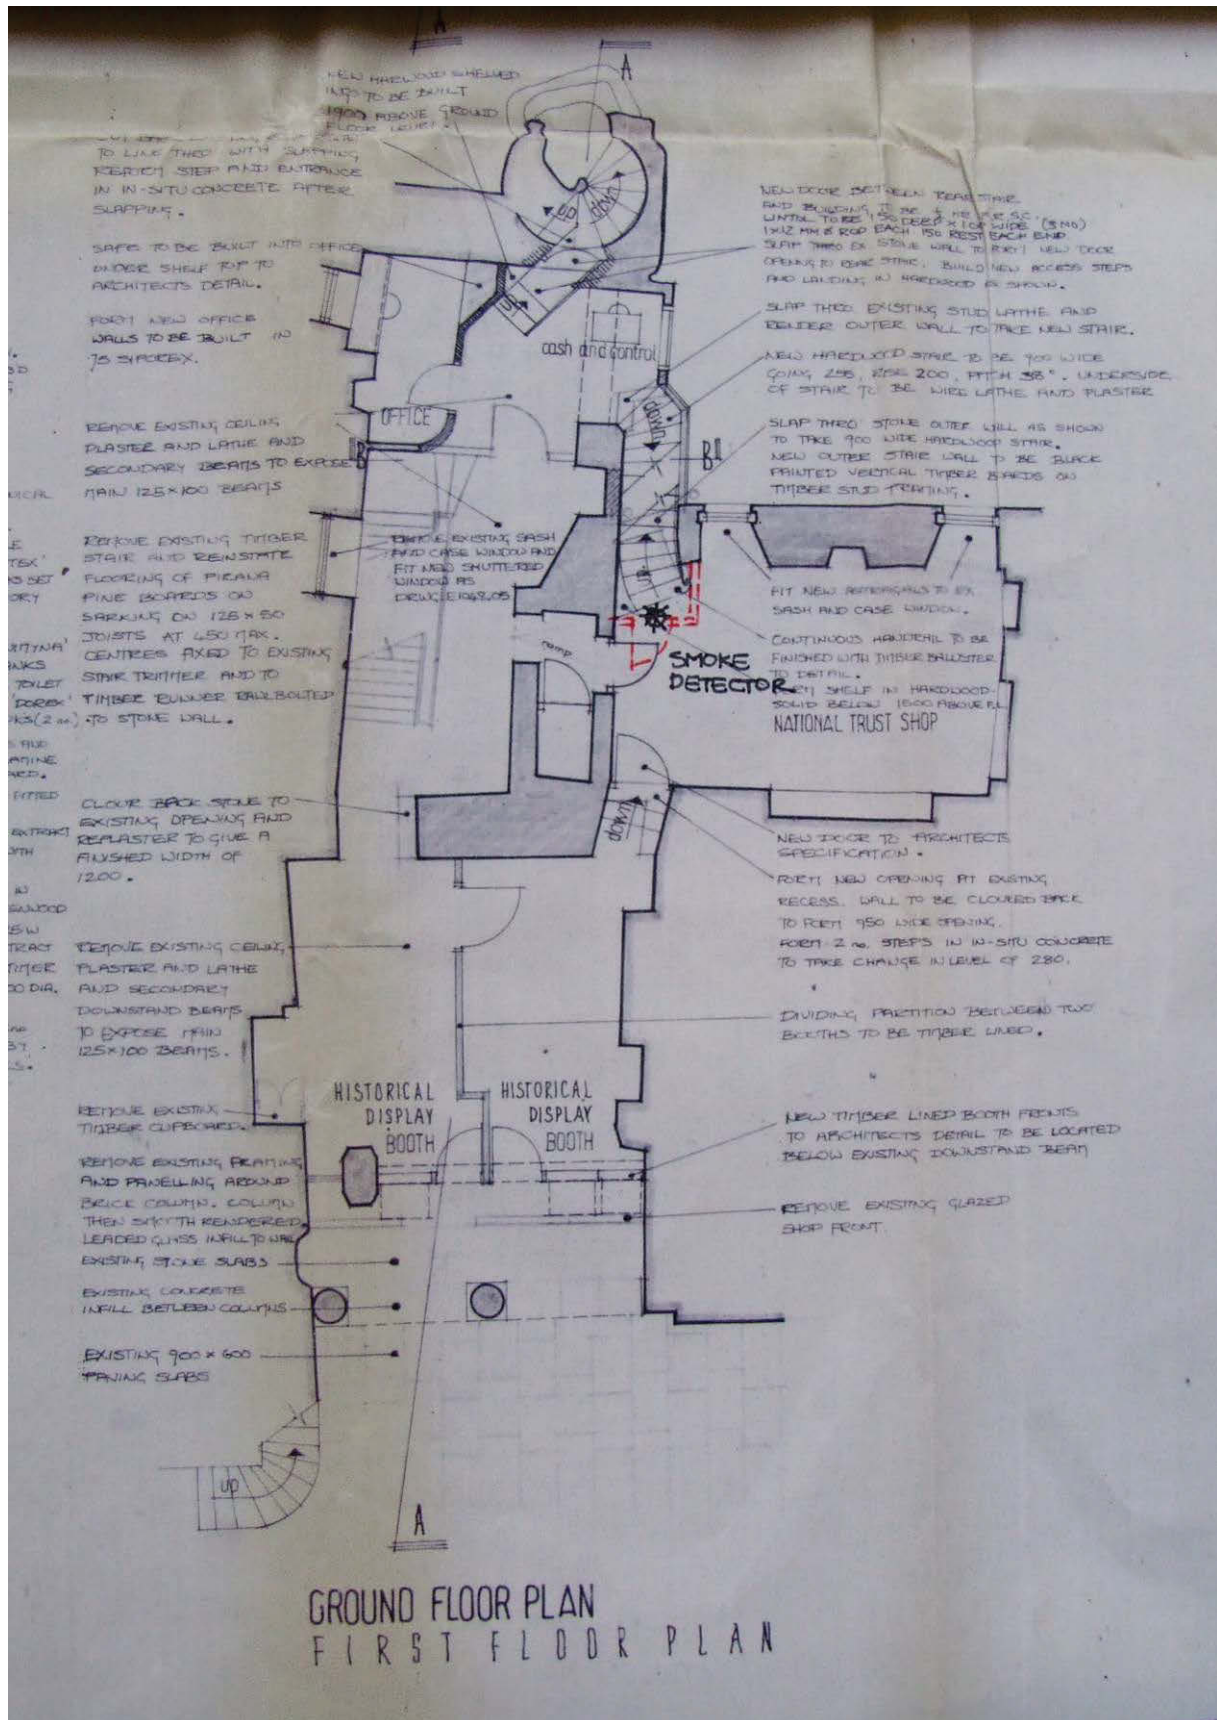 A
A
NEW HARWOOD SHELVED
INGO TO BE BUILT
1900 ABOVE GROUND
FLOOR LEVEL.
TO LINE THRO WITH SLAPPING
REFORM STEP AND ENTRANCE
IN IN-SITU CONCRETE AFTER
SLAPPING.
SAFE TO BE BUILT INTO OFFICE
UNDER SHELF TOP TO
ARCHITECTS DETAIL.
FORM NEW OFFICE
WALLS TO BE BUILT IN
75 SIPOREX.
REMOVE EXISTING CEILING
PLASTER AND LATHE AND
SECONDARY BEAMS TO EXPOSE
MAIN 125×100 BEAMS
REMOVE EXISTING TIMBER
STAIR AND REINSTATE
FLOORING OF PIRANA
PINE BOARDS ON
SARKING ON 125 × 50
JOISTS AT 450 MAX.
CENTRES FIXED TO EXISTING
STAIR TRIMMER AND TO
TIMBER RUNNER RAWLBOLTED
TO STONE WALL.
CLOUR BACK STONE TO
EXISTING OPENING AND
REPLASTER TO GIVE A
FINISHED WIDTH OF
1200.
REMOVE EXISTING CEILING
PLASTER AND LATHE
AND SECONDARY
DOWNSTAND BEAMS
TO EXPOSE MAIN
125×100 BEAMS.
REMOVE EXISTING
TIMBER CUPBOARD.
REMOVE EXISTING FRAMING
AND PANELLING AROUND
BRICK COLUMN. COLUMN
THEN SMOOTH RENDERED.
LEADED GLASS INFILL TO WALL
EXISTING STONE SLABS
EXISTING CONCRETE
INFILL BETWEEN COLUMNS
EXISTING 900 × 600
PAVING SLABS
up
down
up
cash and control
OFFICE
B
down
B
up
REMOVE EXISTING SASH
AND CASE WINDOW AND
FIT NEW SHUTTERED
WINDOW AS
ramp
SMOKE
DETECTOR
down
NATIONAL TRUST SHOP
HISTORICAL
DISPLAY
BOOTH
HISTORICAL
DISPLAY
BOOTH
NEW DOOR BETWEEN REAR STAIR
AND BUILDING TO BE ½ HR F.R.S.C.
LINTOL TO BE 150 DEEP × 100 WIDE (3 NO)
1×12 MM Ø ROD EACH 150 REST EACH END
SLAP THRO EX STONE WALL TO FORM NEW DOOR
OPENING TO REAR STAIR. BUILD NEW ACCESS STEPS
AND LANDING IN HARDWOOD AS SHOWN.
SLAP THRO EXISTING STUD LATHE AND
RENDER OUTER WALL TO TAKE NEW STAIR.
NEW HARDWOOD STAIR TO BE 900 WIDE
GOING 255, RISE 200, PITCH 38°. UNDERSIDE
OF STAIR TO BE WIRE LATHE AND PLASTER
SLAP THRO STONE OUTER WALL AS SHOWN
TO TAKE 900 WIDE HARDWOOD STAIR.
NEW OUTER STAIR WALL TO BE BLACK
PAINTED VERTICAL TIMBER BOARDS ON
TIMBER STUD FRAMING.
FIT NEW ASTRAGALS TO EX
SASH AND CASE WINDOW.
CONTINUOUS HANDRAIL TO BE
FINISHED WITH TIMBER BALUSTER
TO DETAIL.
FORM SHELF IN HARDWOOD
SOLID BELOW 1500 ABOVE F.L
NEW DOOR TO ARCHITECTS
SPECIFICATION.
FORM NEW OPENING AT EXISTING
RECESS. WALL TO BE CLOURED BACK
TO FORM 950 WIDE OPENING.
FORM 2 no. STEPS IN IN-SITU CONCRETE
TO TAKE CHANGE IN LEVEL OF 280.
DIVIDING PARTITION BETWEEN TWO
BOOTHS TO BE TIMBER LINED.
NEW TIMBER LINED BOOTH FRONTS
TO ARCHITECTS DETAIL TO BE LOCATED
BELOW EXISTING DOWNSTAND BEAM
REMOVE EXISTING GLAZED
SHOP FRONT.
up
A
GROUND FLOOR PLAN
FIRST FLOOR PLAN